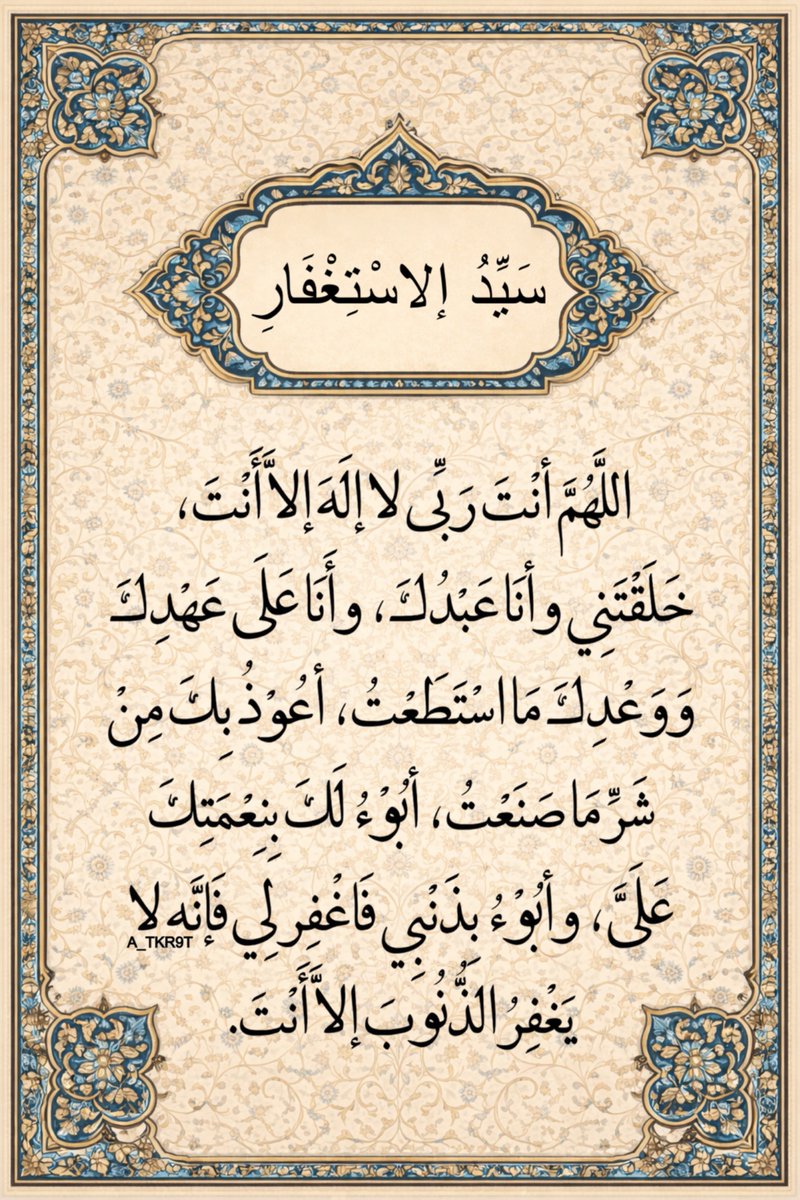 سَيِّدُ إلاسْتِغْفَارِ
اللَّهُمَّ أنْتَ رَبِّى لا إلَهَ إلاَّ أَنْتَ،
خَلَقْتَنِي وأنَا عَبْدُكَ، وأَنَا عَلَى عَهْدِكَ
وَوَعْدِكَ مَا اسْتَطَعْتُ، أعُوْذُ بِكَ مِنْ
شَرِّ مَا صَنَعْتُ، أبُوْءُ لَكَ بِنِعْمَتِكَ
عَلَىَّ، وأبُوْءُ بِذَنْبِي فَاغْفِر لِي فَإنَّه لا
A_TKR9T
يَغْفِرُ الذُّنُوبَ إلاَّ أَنْتَ.